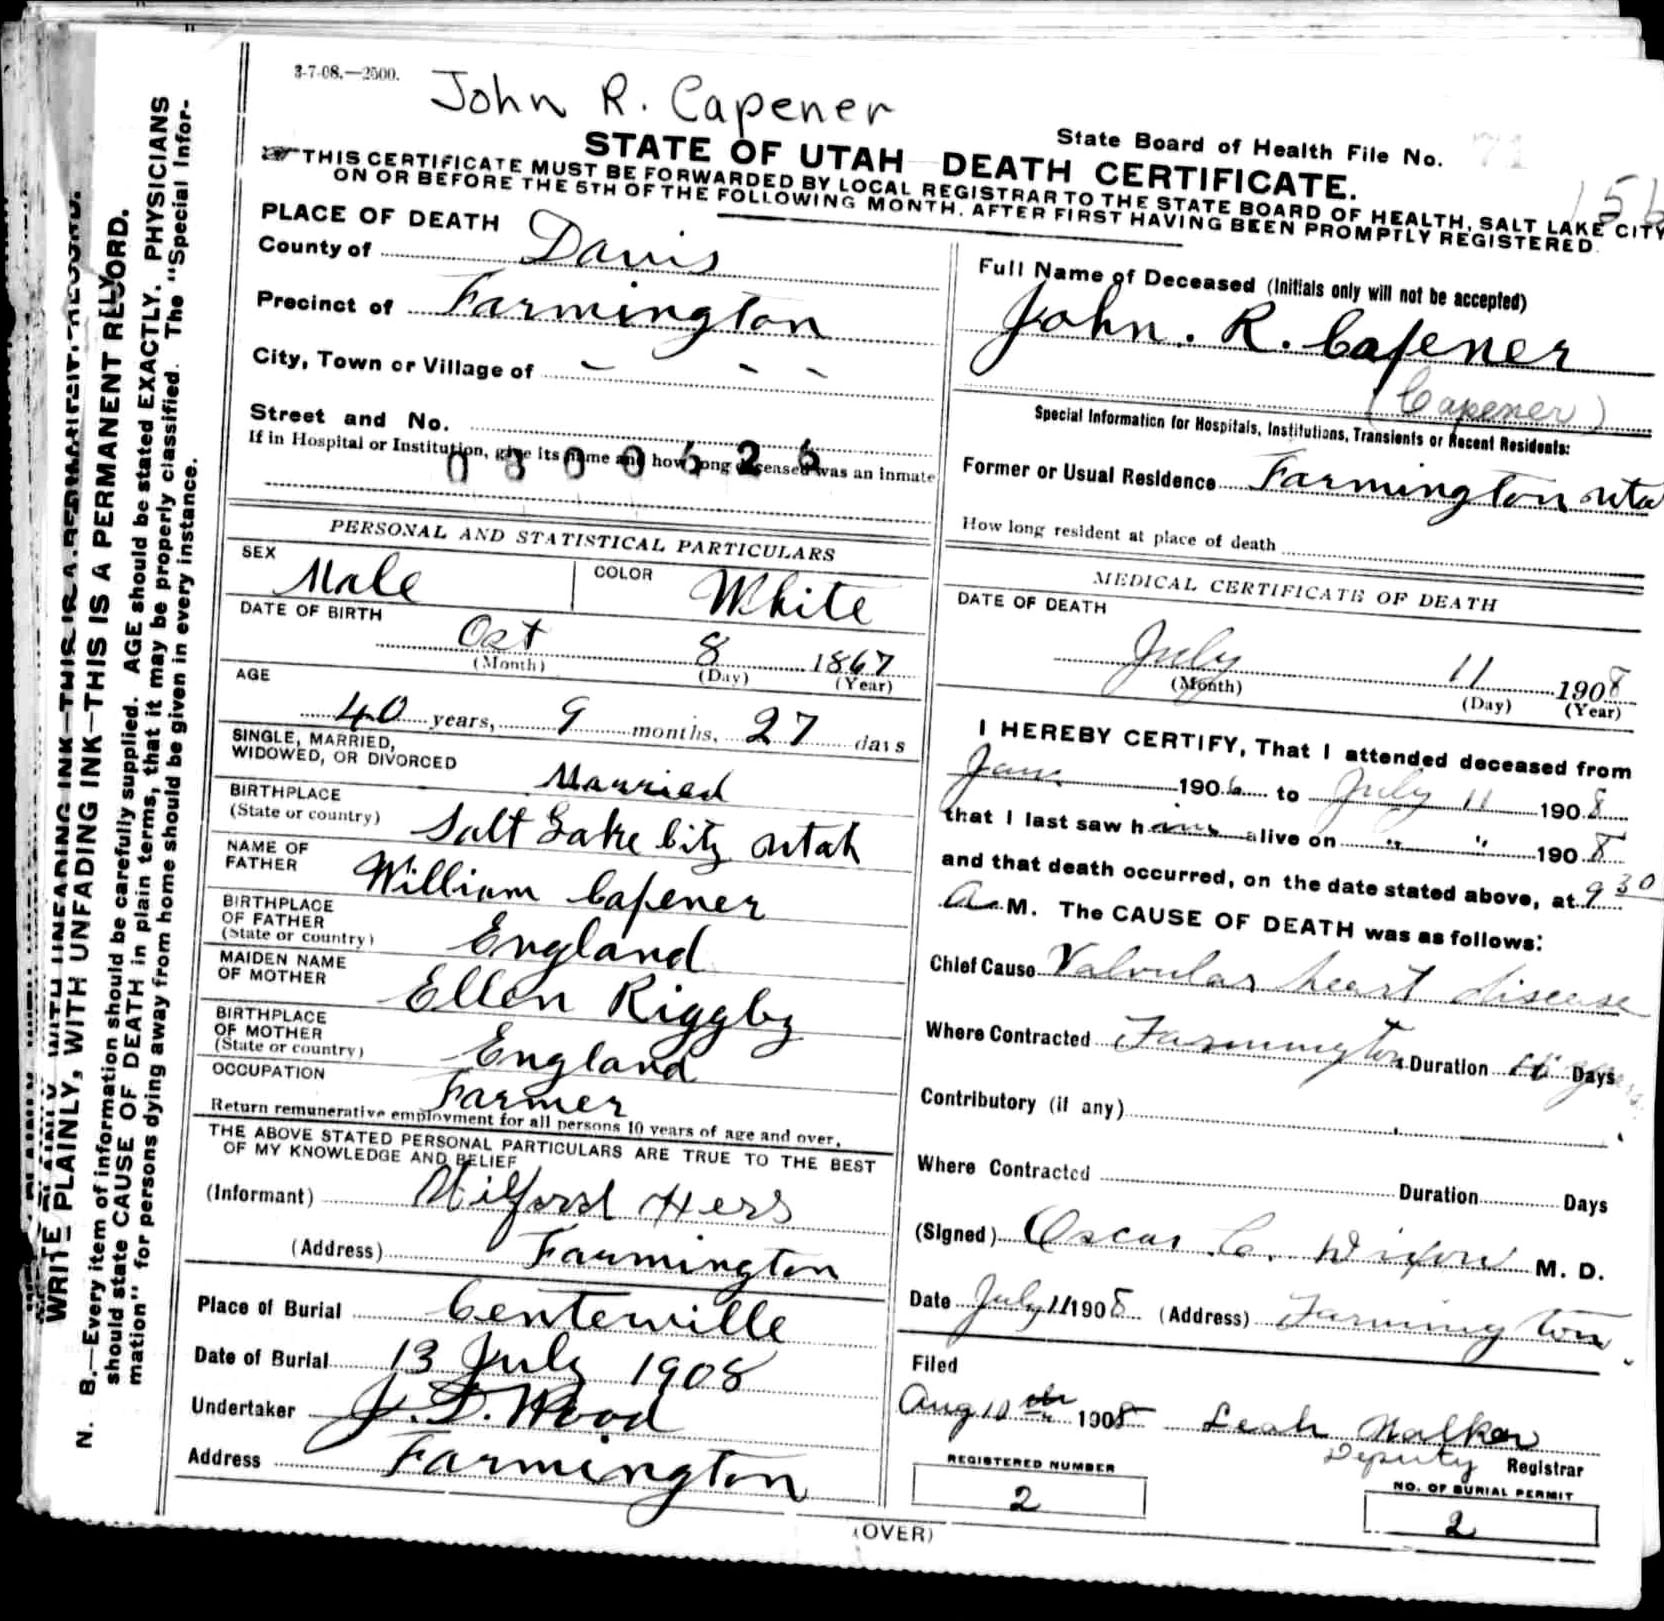 3-7-08.—2500.
John R. Capener
State Board of Health File No. 71
156
STATE OF UTAH DEATH CERTIFICATE.
THIS CERTIFICATE MUST BE FORWARDED BY LOCAL REGISTRAR TO THE STATE BOARD OF HEALTH, SALT LAKE CITY
ON OR BEFORE THE 5TH OF THE FOLLOWING MONTH, AFTER FIRST HAVING BEEN PROMPTLY REGISTERED.
WRITE PLAINLY, WITH UNFADING INK—THIS IS A PERMANENT RECORD.
N. B.—Every item of information should be carefully supplied. AGE should be stated EXACTLY. PHYSICIANS
should state CAUSE OF DEATH in plain terms, that it may be properly classified. The "Special Infor-
mation" for persons dying away from home should be given in every instance.
PLACE OF DEATH
County of Davis
Precinct of Farmington
City, Town or Village of - - -
Street and No.
If in Hospital or Institution, give its name and how long deceased was an inmate
0300626
PERSONAL AND STATISTICAL PARTICULARS
SEX Male COLOR White
DATE OF BIRTH
Oct 8 1867
(Month) (Day) (Year)
AGE
40 years, 9 months, 27 days
SINGLE, MARRIED,
WIDOWED, OR DIVORCED Married
BIRTHPLACE
(State or country) Salt Lake City Utah
NAME OF
FATHER William Capener
BIRTHPLACE
OF FATHER
(State or country) England
MAIDEN NAME
OF MOTHER Ellen Riggby
BIRTHPLACE
OF MOTHER
(State or country) England
OCCUPATION
Farmer
Return remunerative employment for all persons 10 years of age and over.
THE ABOVE STATED PERSONAL PARTICULARS ARE TRUE TO THE BEST
OF MY KNOWLEDGE AND BELIEF
(Informant) Wilford Hess
(Address) Farmington
Place of Burial Centerville
Date of Burial 13 July 1908
Undertaker J. D. Wood
Address Farmington
Full Name of Deceased (Initials only will not be accepted)
John. R. Capener
(Capener)
Special Information for Hospitals, Institutions, Transients or Recent Residents:
Former or Usual Residence Farmington Uta
How long resident at place of death
MEDICAL CERTIFICATE OF DEATH
DATE OF DEATH
July 11 1908
(Month) (Day) (Year)
I HEREBY CERTIFY, That I attended deceased from
1906 to July 11 1908
that I last saw him alive on " " 1908
and that death occurred, on the date stated above, at 9 30
a. M. The CAUSE OF DEATH was as follows:
Chief Cause Valvular heart disease
Where Contracted Farmington Duration Days
Contributory (if any)
Where Contracted Duration Days
(Signed) Oscar C. Dixon M. D.
Date July 11 1908 (Address) Farmington
Filed
Aug 10th 1908 Leah Walker
Deputy Registrar
REGISTERED NUMBER
2
NO. OF BURIAL PERMIT
2
(OVER)